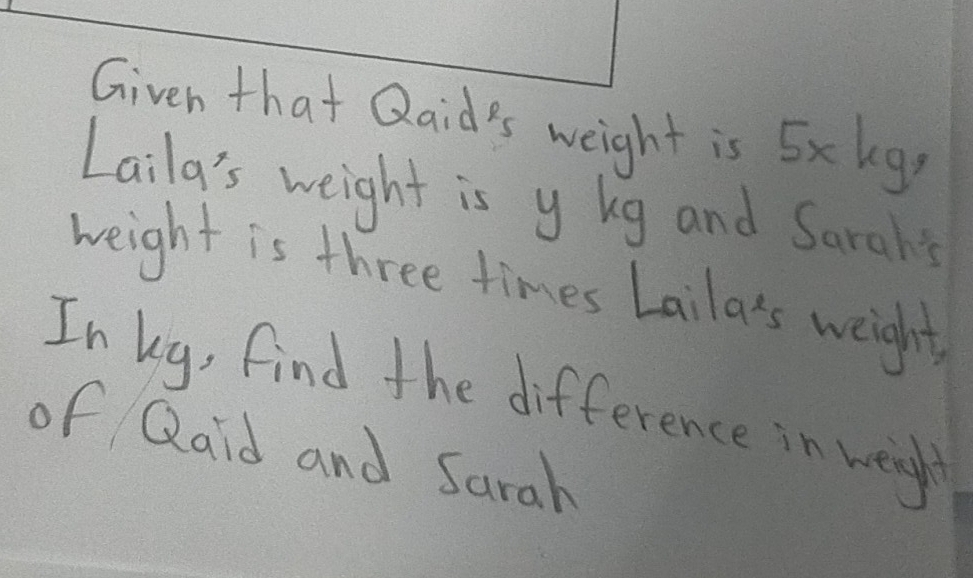 Given that Qaid's weight is 5x kg,
Laila's weight is y kg and Sarah's
weight is three times Laila's weight.
In kg, find the difference in weight
of Qaid and Sarah